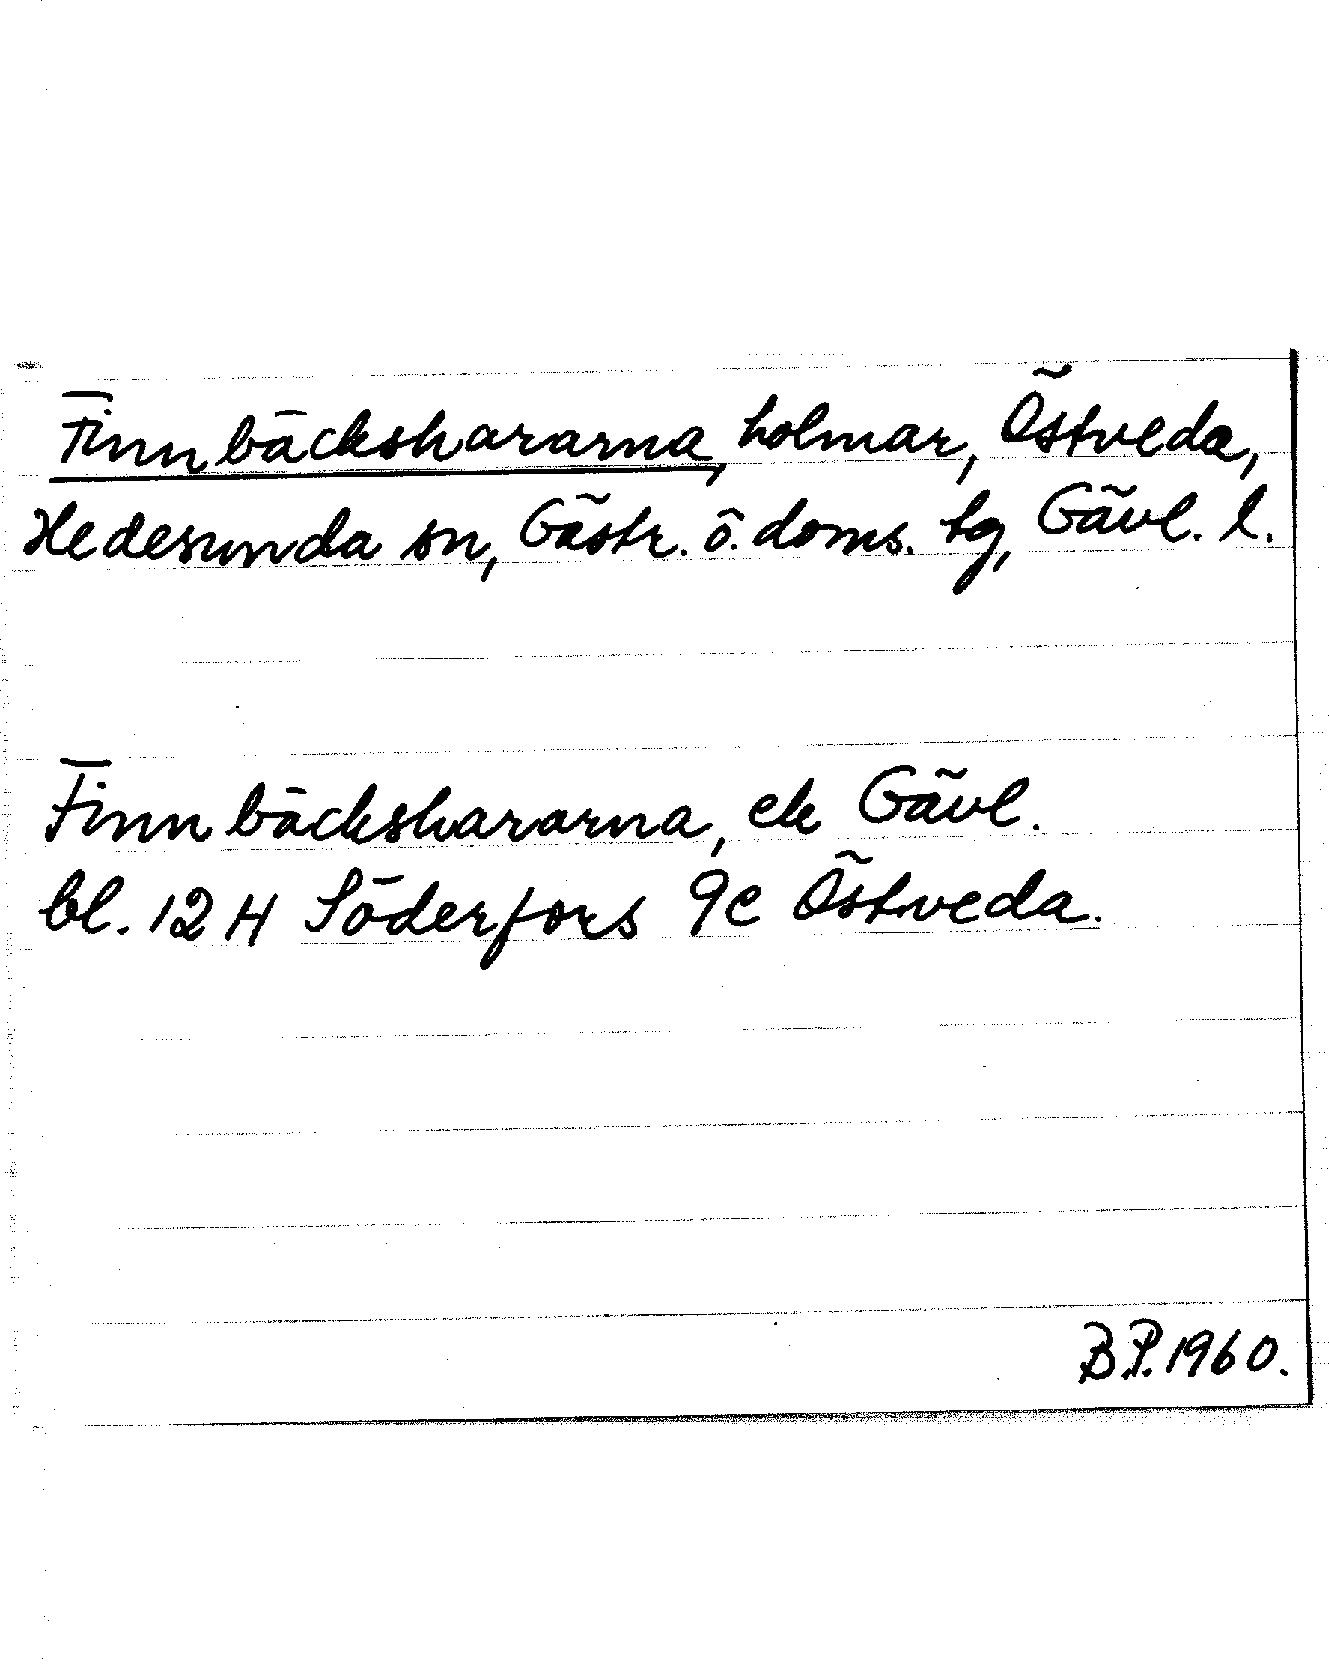 Finnbäckshararna, holmar, Östveda,
Hedesunda sn, Gästr. ö. doms. tg, Gävl. l.
Finnbäckshararna, ek Gävl.
bl. 12 H Söderfors 9c Östveda.
B.P. 1960.